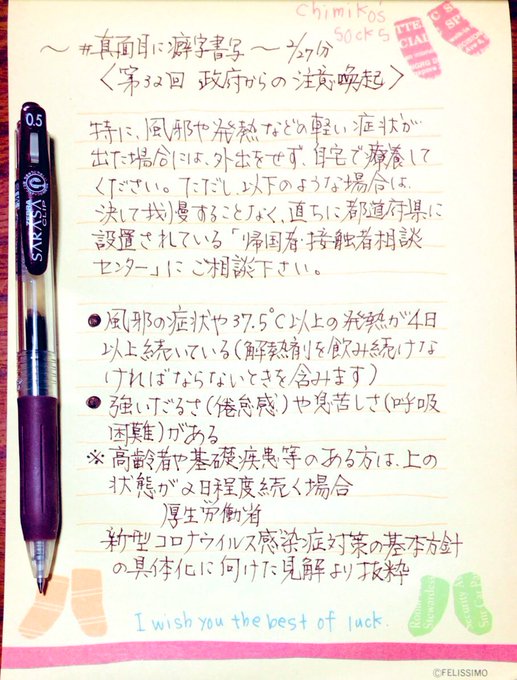 chimiko's
socks
～#真面目に癖字書写～2/27分
＜第32回 政府からの注意喚起＞
特に、風邪や発熱などの軽い症状が
出た場合には、外出をせず、自宅で療養して
ください。ただし、以下のような場合は、
決して我慢することなく、直ちに都道府県に
設置されている「帰国者・接触者相談
センター」にご相談下さい。
●風邪の症状や37.5℃以上の発熱が4日
以上続いている(解熱剤を飲み続けな
ければならないときを含みます)
●強いだるさ(倦怠感)や息苦しさ(呼吸
困難)がある
※高齢者や基礎疾患等のある方は、上の
状態が2日程度続く場合
厚生労働省
新型コロナウイルス感染症対策の基本方針
の具体化に向けた見解より抜粋
I wish you the best of luck.
©FELISSIMO
0.5
ZEBRA
SARASA
CLIP